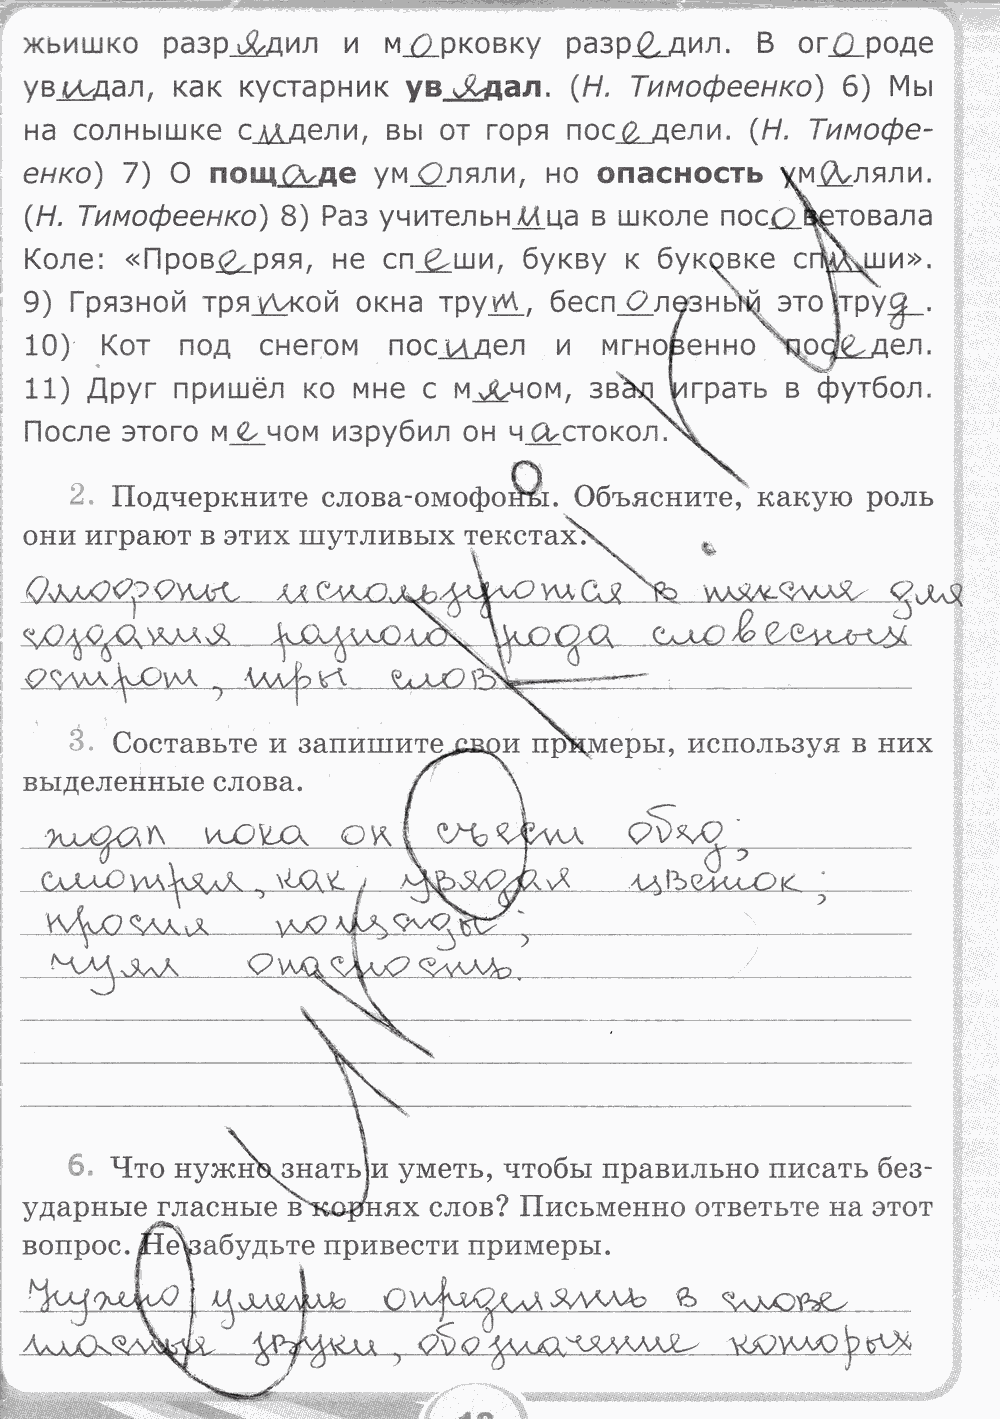 жьишко разрядил и морковку разредил. В огороде
увидал, как кустарник увядал. (Н. Тимофеенко) 6) Мы
на солнышке сидели, вы от горя поседели. (Н. Тимофе-
енко) 7) О пощаде умоляли, но опасность умаляли.
(Н. Тимофеенко) 8) Раз учительница в школе посоветовала
Коле: «Проверяя, не спеши, букву к буковке спиши».
9) Грязной тряпкой окна трут, бесполезный это труд.
10) Кот под снегом посидел и мгновенно поседел.
11) Друг пришёл ко мне с мячом, звал играть в футбол.
После этого мечом изрубил он частокол.
2. Подчеркните слова-омофоны. Объясните, какую роль
они играют в этих шутливых текстах.
Омофоны используются в тексте для
создания разного рода словесных
острот, игры слов
3. Составьте и запишите свои примеры, используя в них
выделенные слова.
ждал пока он съест обед;
смотрел, как увядал цветок;
просил пощады;
чуял опасность.
6. Что нужно знать и уметь, чтобы правильно писать без-
ударные гласные в корнях слов? Письменно ответьте на этот
вопрос. Не забудьте привести примеры.
Нужно уметь определять в слове
гласные звуки, обозначение которых
13